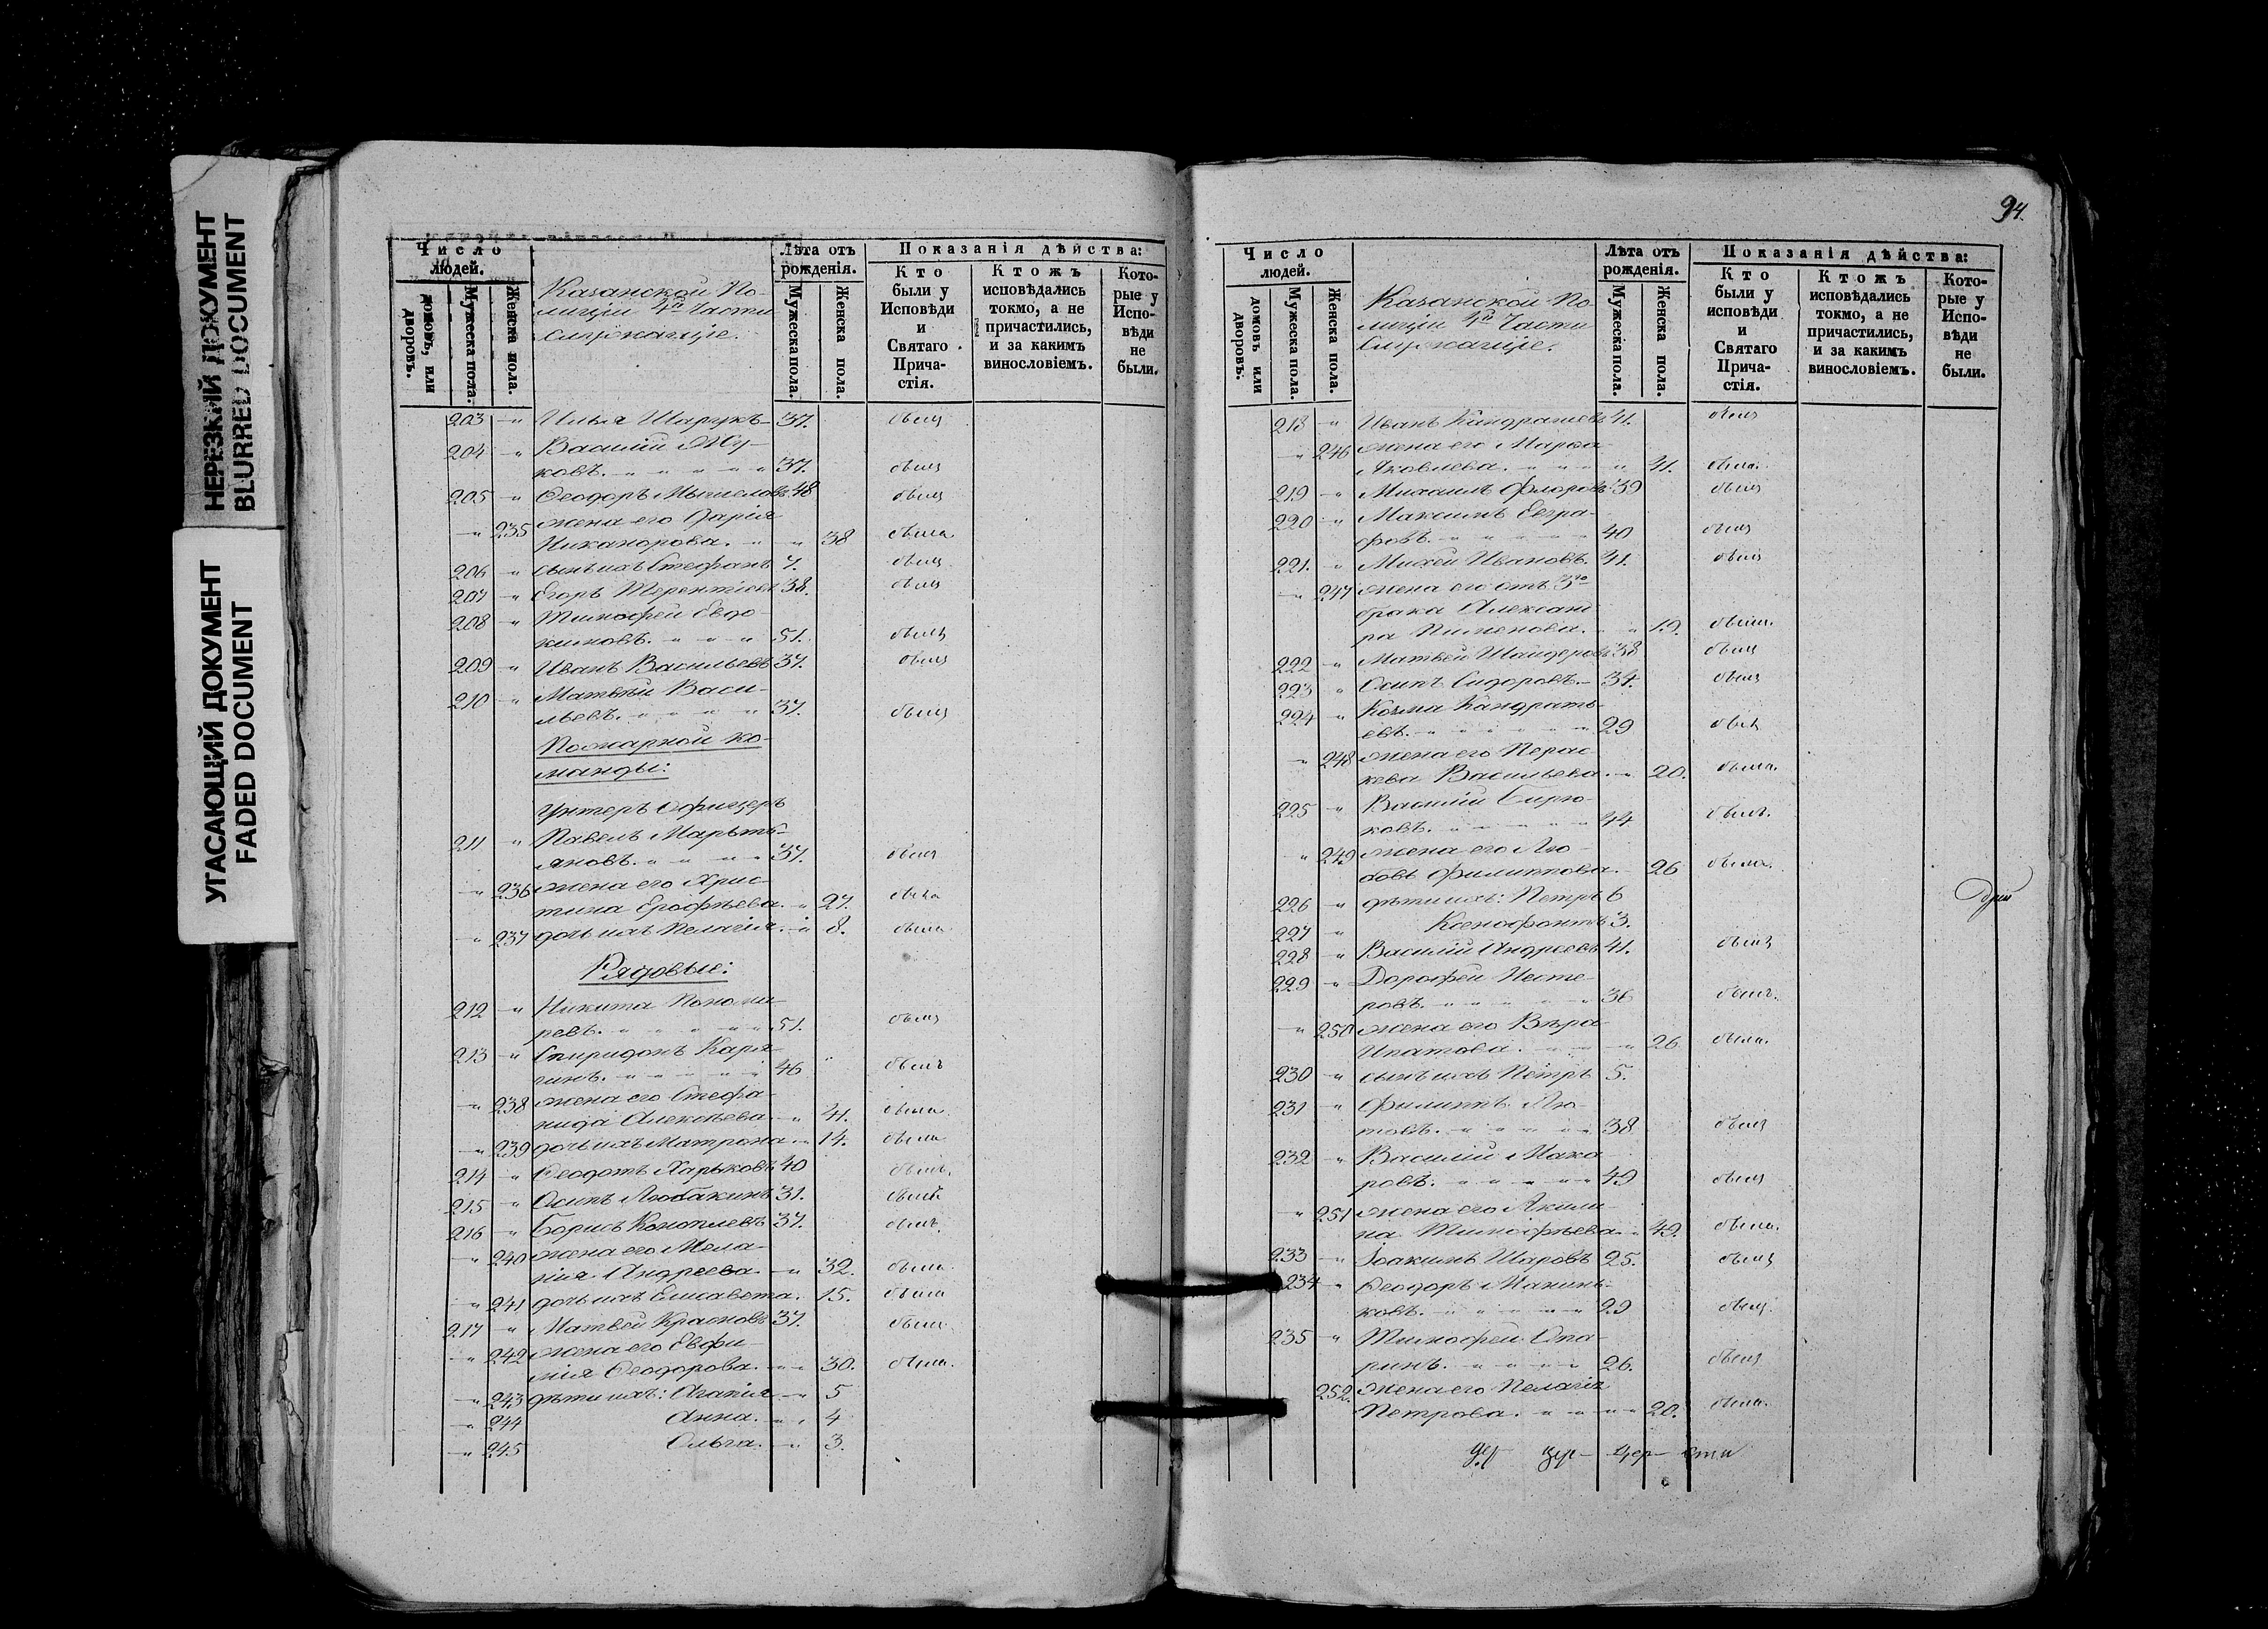 НЕРЕЗКИЙ ДОКУМЕНТ
BLURRED DOCUMENT
УГАСАЮЩИЙ ДОКУМЕНТ
FADED DOCUMENT
Число людей.
домовъ, или дворовъ.
Мужеска пола.
Женска пола.
Казанской По-
лиціи 4й Части
служащіе.
Лѣта отъ рожденія.
Мужеска пола.
Женска пола.
Показанія дѣйства:
Кто были у Исповѣди и Святаго Прича-стія.
Ктожъ исповѣдались токмо, а не причастились, и за какимъ винословіемъ.
Кото-рые у Испо-вѣди не были.
203 " Илья Шарукъ 37. былъ
204 " Василій Жу-
ковъ. " " " " " 37. былъ
205 " Ѳеодоръ Мысловъ 48 былъ
" 235 жена его Дарія
Никанорова. " " 38 была
206 " сынъ ихъ Стефанъ 7. былъ
207 " Егоръ Терентіевъ 38. былъ
208 " Тимофей Евдо-
кимовъ. " " " " 51. былъ
209 " Иванъ Васильевъ 37. былъ
210 " Матвѣй Васи-
льевъ. " " " " 37. былъ
Пожарной ко-
манды:
Унтеръ Офицеръ
211 " Павелъ Марть-
яновъ. " " " " 37. былъ
" 236 жена его Хрис-
тина Ерофѣева. " 27. была
" 237 дочь ихъ Пелагія. " 8. была
Рядовые:
212 " Никита Понома-
ревъ. " " " " " 51. былъ
213 " Спиридонъ Каря-
гинъ. " " " " " 46 былъ
" 238 жена его Стефа-
нида Алексѣева " 41. была
" 239 дочь ихъ Матрона " 14. была
214 " Ѳеодотъ Харьковъ 40 былъ.
215 " Осипъ Любакинъ 31. былъ
216 " Борисъ Коноплевъ 37. былъ.
" 240 жена его Мела-
нія Андреева. " 32. была.
" 241 дочь ихъ Елисавета. 15. была
217 " Матвей Красновъ 37. былъ
" 242 жена его Евфи-
мія Ѳеодорова. " " 30. была.
" 243 дѣти ихъ: Агапія " 5
" 244 Анна. " " 4
" 245 Ольга. " 3.
94.
Число людей.
домовъ или дворовъ.
Мужеска пола.
Женска пола.
Казанской По-
лиціи 4й Части
Служащіе.
Лѣта отъ рожденія.
Мужеска пола.
Женска пола.
Показанія дѣйства:
Кто были у исповѣди и Святаго Прича-стія.
Ктожъ исповѣдались токмо, а не причастились, и за какимъ винословіемъ.
Кото-рые у Испо-вѣди не были.
218 " Иванъ Кондратьевъ 41. былъ
" 246 жена его Марѳа
Яковлева. " " " " 41. была.
219 " Михаилъ Флоровъ 39 былъ
220 " Максимъ Евгра-
фовъ. " " " " " 40 былъ
221. " Михей Ивановъ. 41. былъ
" 247 жена его отъ 3го
брака Александ
ра Пименова. " " 19. была.
222 " Матвей Шайдеровъ 38 былъ
223 " Осипъ Сидоровъ. 34. былъ
224 " Козма Кандрать-
евъ. " " " " " 29 былъ
" 248 жена его Парас-
кева Васильева. " 20. была.
225 " Василій Бирю-
ковъ. " " " " " 44 былъ.
" 249 жена его Лю-
бовь Филиппова. " 26 была.
226 " дѣти ихъ: Петръ 6
227 " Ксенофонтъ 3.
228 " Василій Андреевъ 41. былъ
229 " Дорофей Несте-
ровъ. " " " " " 36 былъ.
" 250 жена его Вѣра
Ипатова. " " " 26 была.
230 " сынъ ихъ Петръ 5.
231 " Филиппъ Лю-
товъ. " " " " " 38 былъ
232 " Василій Мака
ровъ. " " " " " 49 былъ
" 251 жена его Акили-
на Тимофѣева. " 49. была.
233 " Іоакимъ Шаровъ 25. былъ
234 " Ѳеодоръ Манинь-
ковъ. " " " " " 29 былъ.
235 " Тимофей Опа-
ринъ. " " " " 26. былъ
252. жена его Пелагія
Петрова. " " " " 20. была.